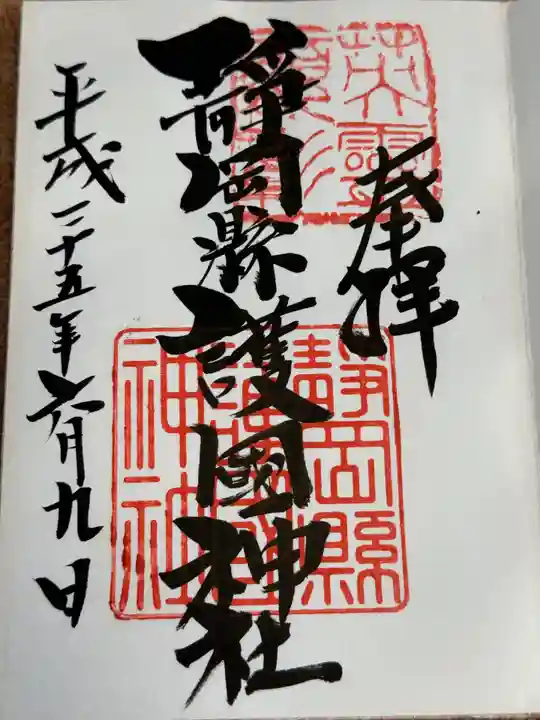 奉拝
靜岡縣護國神社
平成二十五年六月九日
英霊顕彰
静岡縣護國神社